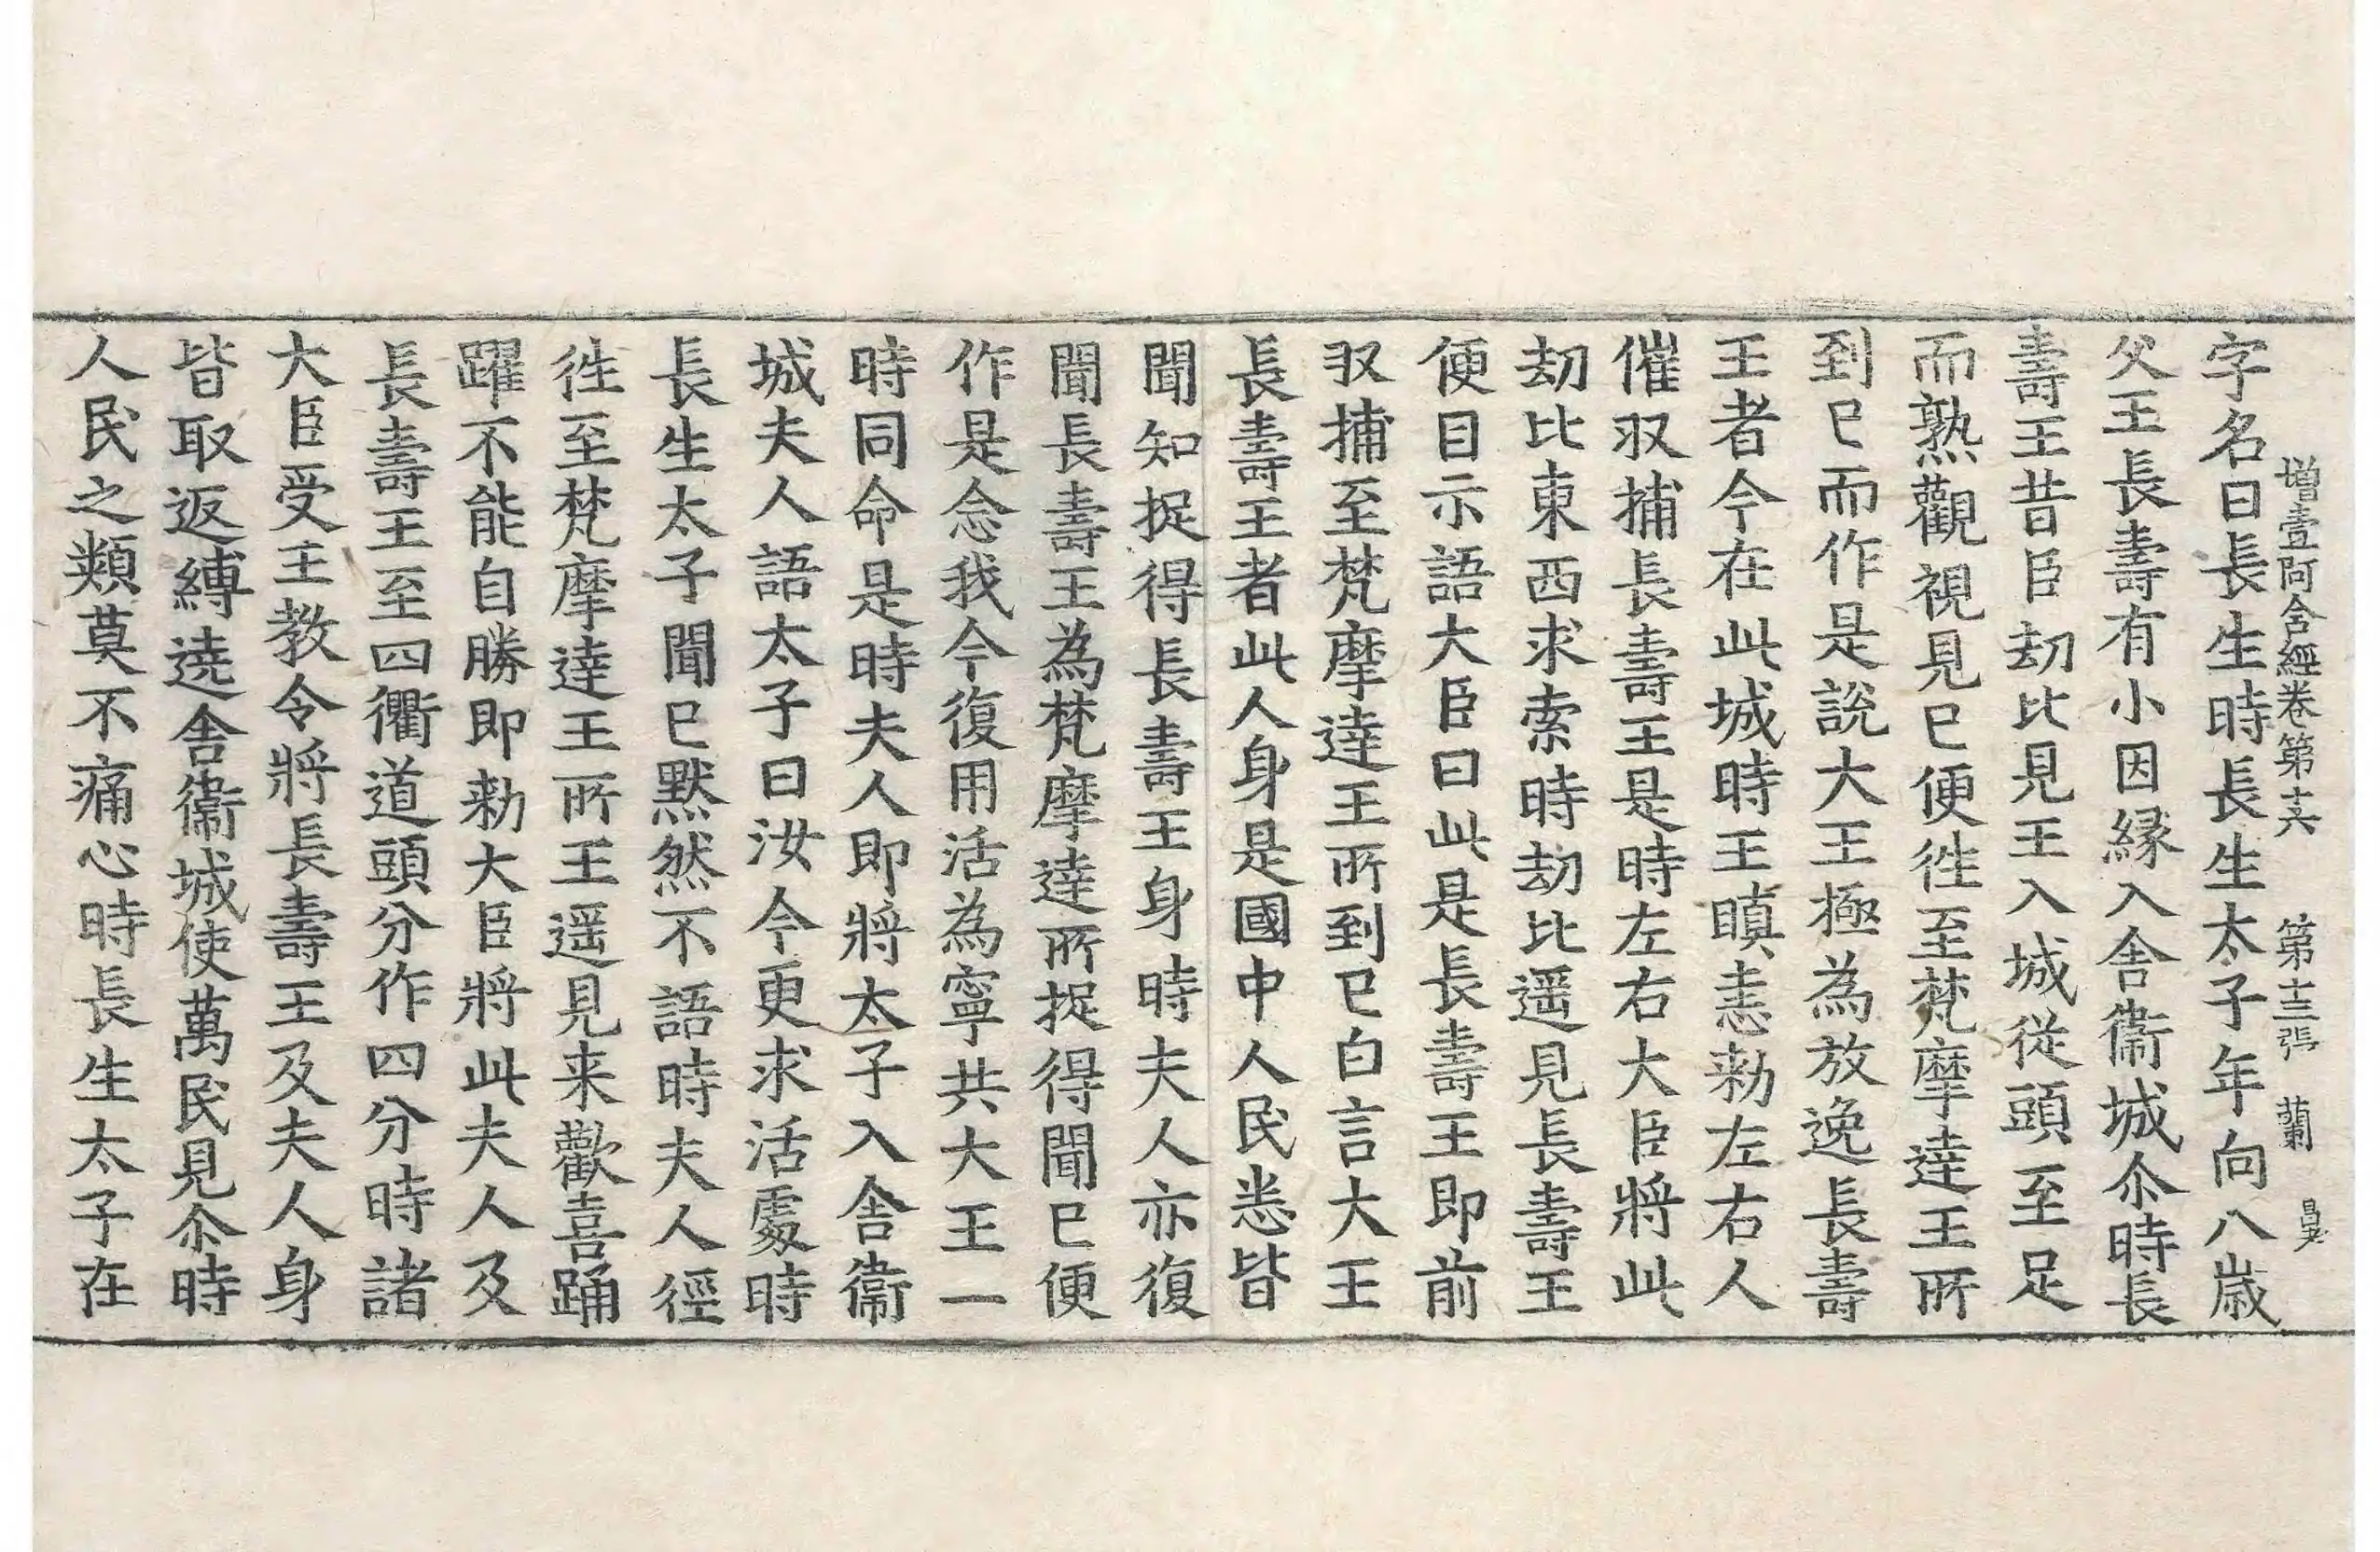 增壹阿含經卷第十六 第十三張 蘭
字名曰長生時長生太子年向八歲
父王長壽有小因緣入舍衞城尒時長
壽王昔臣劫比見王入城從頭至足
而熟觀視見已便徃至梵摩達王所
到已而作是說大王極爲放逸長壽
王者今在此城時王瞋恚勑左右人
催収捕長壽王是時左右大臣將此
劫比東西求索時劫比遥見長壽王
便目示語大臣曰此是長壽王即前
収捕至梵摩達王所到已白言大王
長壽王者此人身是國中人民悉皆
聞知捉得長壽王身時夫人亦復
聞長壽王為梵摩達所捉得聞已便
作是念我今復用活為寧共大王一
時同命是時夫人即將太子入舍衞
城夫人語太子曰汝今更求活處時
長生太子聞已默然不語時夫人徑
徃至梵摩達王所王遥見来歡喜踊
躍不能自勝即勑大臣將此夫人及
長壽王至四衢道頭分作四分時諸
大臣受王教令將長壽王及夫人身
皆取返縛遶舍衞城使萬民見尒時
人民之類莫不痛心時長生太子在